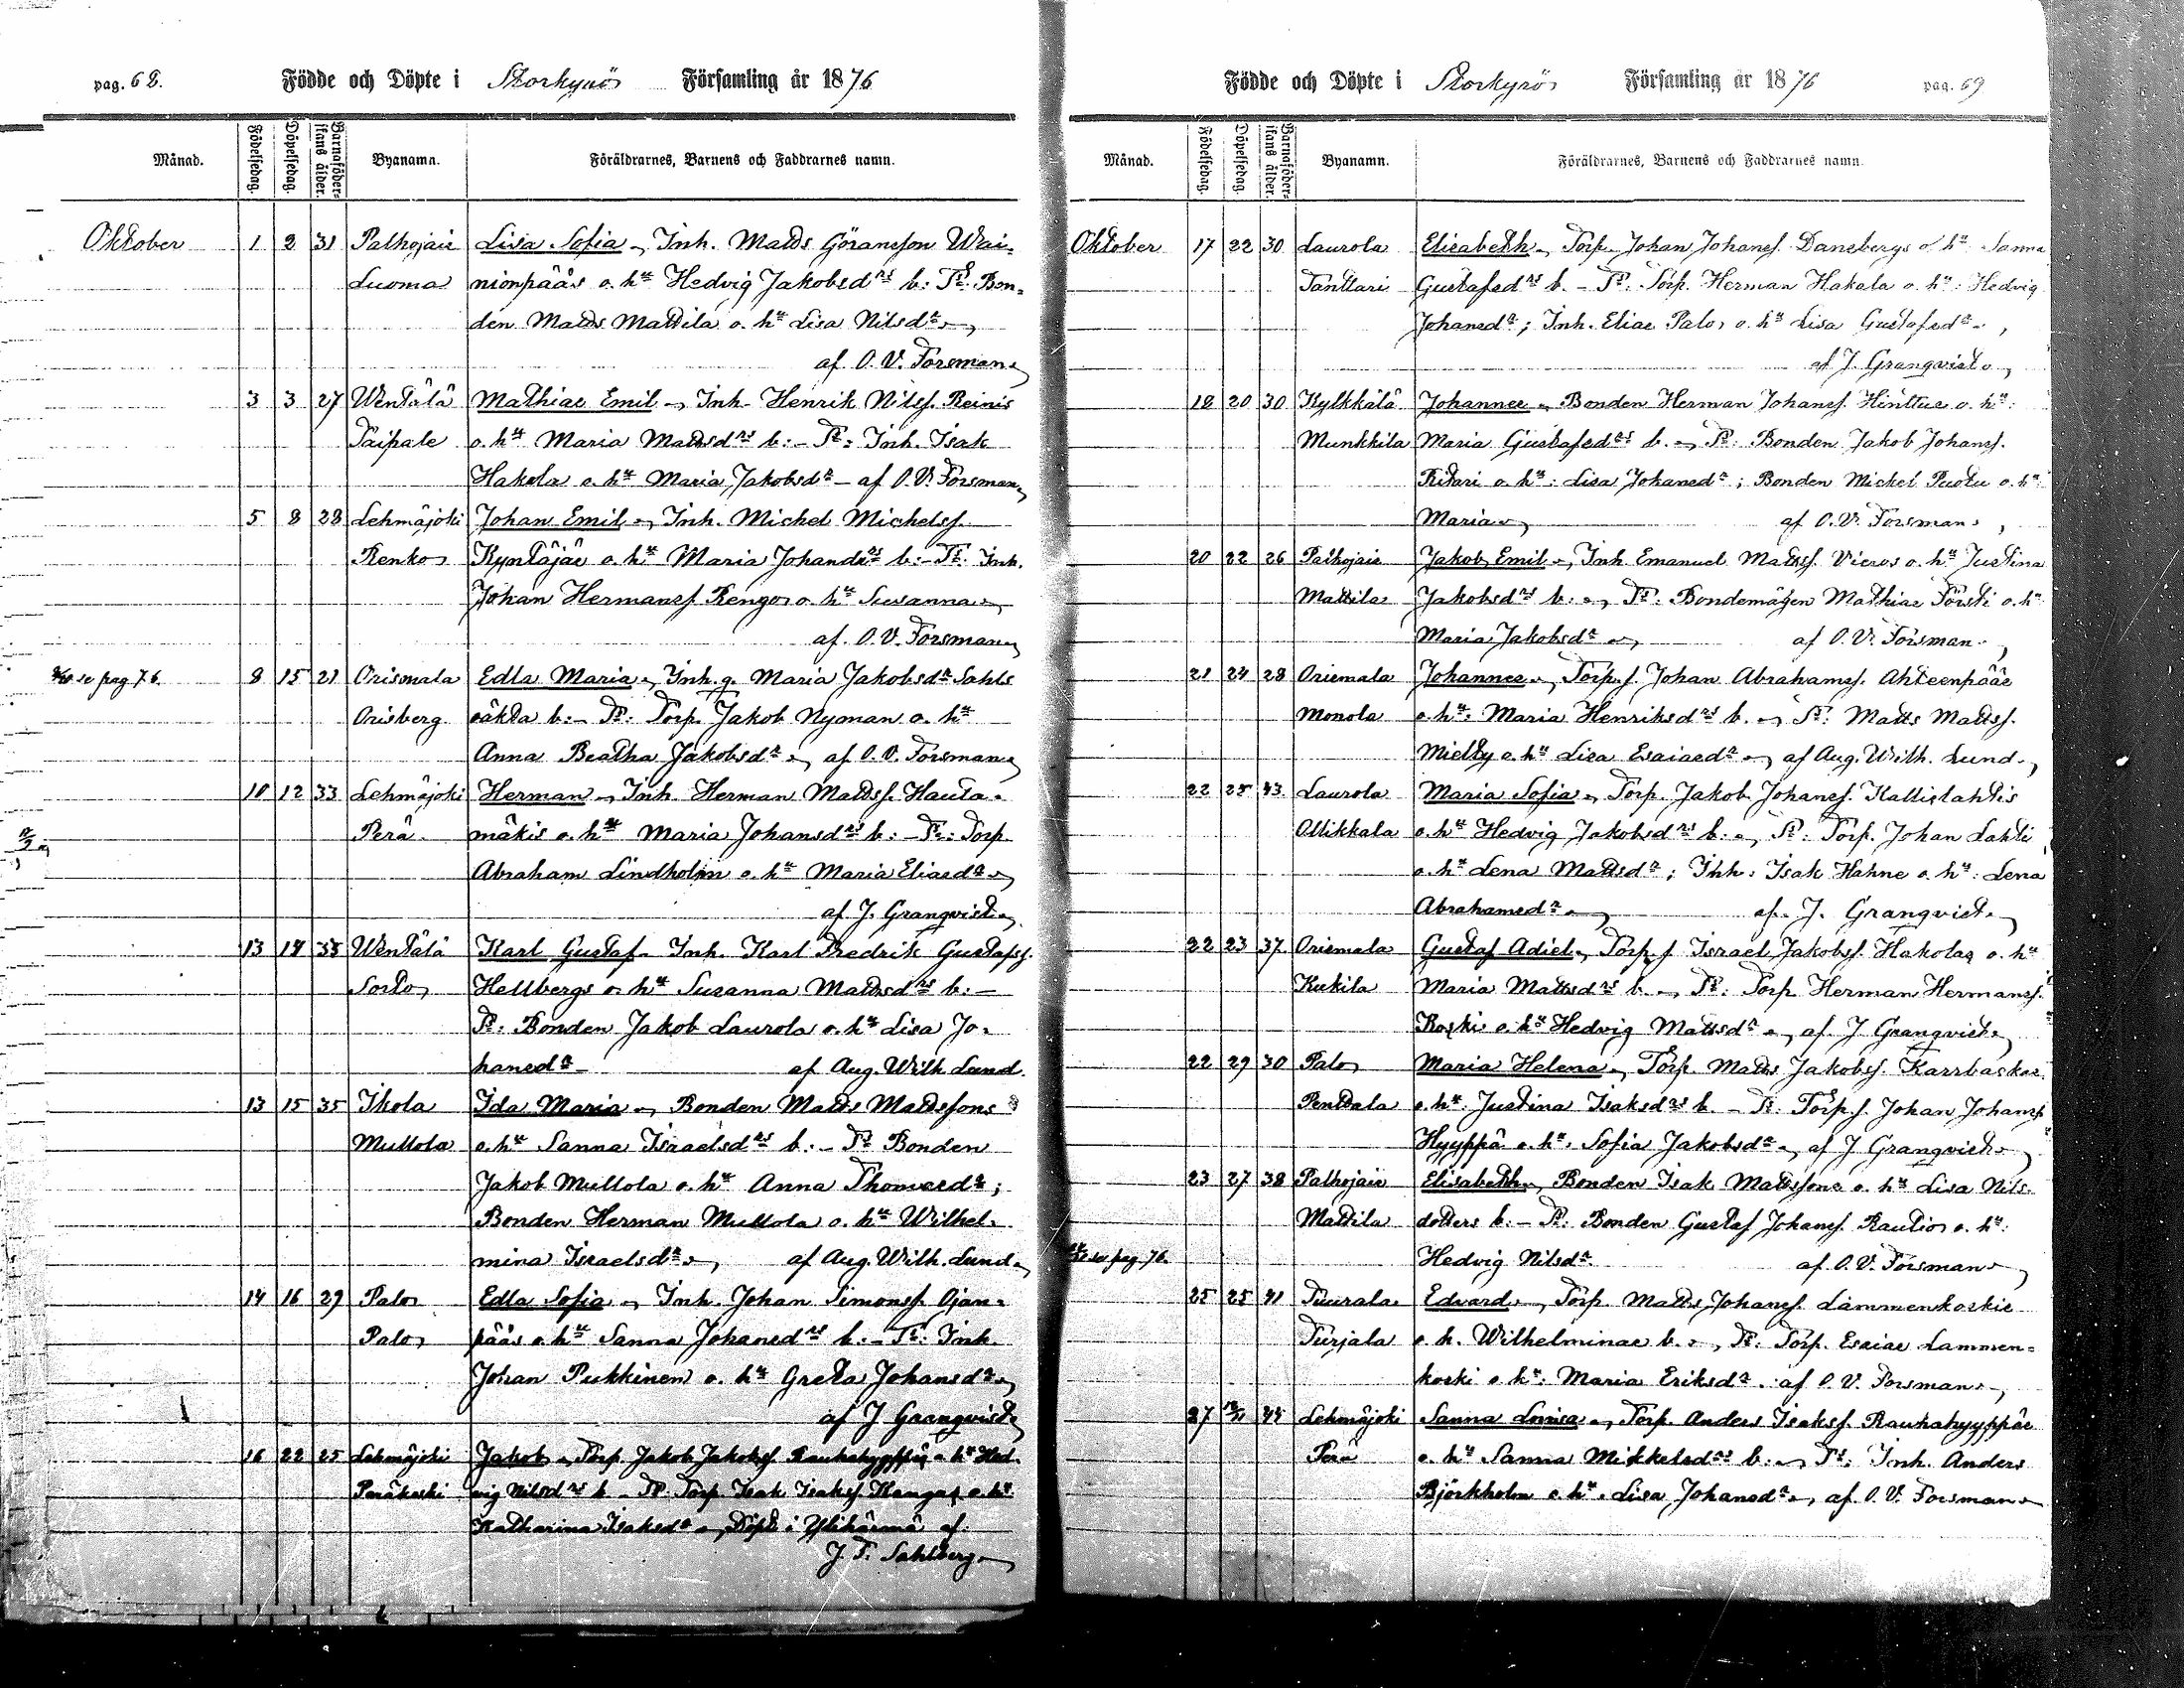 pag. 68. Födde och Döpte i Storkyrö Församling år 1876
Månad. Födelsedag. Döpelsedag. Barnaföderskans ålder. Byanamn. Föräldrarnes, Barnens och Faddrarnes namn.
Oktober 1 2 31 Palhojais Lisa Sofia Inh. Matts Göransson Wai-
Luoma nionpääs o. hu Hedvig Jakobsdrs b: Tr: Bon-
den Matts Mattila o. hu Lisa Nilsdr
af O. V. Forsman
3 3 27 Wentälä Mathias Emil Inh. Henrik Nilss. Reinis
Taipale o. hu Maria Mattsdrs b: - Tr: Inh. Isak
Hakola o. hu Maria Jakobsdr - af O. V. Forsman
5 8 28 Lehmäjoki Johan Emil Inh. Michel Michelss.
Renko Kyntäjäs o. hu Maria Johansdrs b: - Tr: Inh.
Johan Hermanss. Rengo o. hu Susanna
af. O. V. Forsman
se pag 76. 8 15 21 Orismala Edla Maria Inh. q. Maria Jakobsdr Sahls
Orisberg oäkta b: - Tr: Torp. Jakob Nyman o. hu
Anna Beatha Jakobsdr af. O. V. Forsman
10 12 33 Lehmäjoki Herman Inh. Herman Mattss. Hauta-
Perä mäkis o. hu Maria Johansdrs b: - Tr: Torp.
Abraham Lindholm o. hu Maria Eliasdr
af J. Granqvist
13 14 33 Wentälä Karl Gustaf Inh. Karl Fredrik Gustafss.
Sorto Hellbergs o. hu Susanna Mattsdrs b: -
Tr: Bonden Jakob Laurola o. hu Lisa Jo-
hansdr - af Aug. Wilh. Lund.
13 15 35 Ikola Ida Maria Bonden Matts Mattssons
Mullola o. hu Sanna Israelsdrs b: - Tr Bonden
Jakob Mullola o. hu Anna Thomasdr;
Bonden Herman Mullola o. hu Wilhel-
mina Israelsdr af Aug. Wilh. Lund
14 16 29 Palo Edla Sofia Inh. Johan Simonss. Ojan-
Palo pääs o. hu Sanna Johansdrs b: - Tr: Inh.
Johan Pukkinen o. hu Greta Johansdr
af J Granqvist
16 22 25 Lehmäjoki Jakob Torp Jakob Jakobss. Rauhahyyppäs o. hu Hed-
Peräkoski vig Nilsdrs b - Tr: Torp Isak Isakss. Kangas o. hu
Katharina Isaksdr Döpt i Ylihärmä af
J. F. Sahlberg
Födde och Döpte i Storkyrö Församling år 1876 pag. 69
Månad. Födelsedag. Döpelsedag. Barnaföderskans ålder. Byanamn. Föräldrarnes, Barnens och Faddrarnes namn.
Oktober 17 22 30 Laurola Elisabeth Torp. Johan Johanss. Danebergs o hu Sanna
Tanttari Gustafsdrs b. - Tr: Torp. Herman Hakala o. hu: Hedvig
Johansdr; Inh. Elias Palo o. hu Lisa Gustafsdr
af J. Granqvist
18 20 30 Kylkkälä Johannes Bonden Herman Johanss. Hinttus o. hu:
Munkkila Maria Gustafsdrs b. Tr: Bonden Jakob Johanss.
Ritari o. hu: Lisa Johansdr; Bonden Michel Puotu o. hu:
Maria af O. V. Forsman
20 22 26 Palhojais Jakob Emil Inh. Emanuel Mattss. Vieros o. hu Justina
Mattila Jakobsdrs b: Tr: Bondemågen Mathias Försti o. hu
Maria Jakobsdr af O. V. Forsman
21 24 28 Orismala Johannes Torp. s. Johan Abrahamss. Ahteenpääs
Monola o. hu: Maria Henriksdrs b. Tr: Matts Mattss.
Mielty o. hu Lisa Esaiasdr af Aug. Wilh. Lund
22 25 43 Laurola Maria Sofia Torp. Jakob Johanss. Kallislahtis
Ollikkala o. hu Hedvig Jakobsdrs b: Tr: Torp. Johan Lahti
o. hu Lena Mattsdr; Inh: Isak Hahne o. hu: Lena
Abrahamsdr af. J. Granqvist
22 23 37 Orismala Gustaf Adiel Torp. s Israel Jakobss. Hakolas o. hu
Kukila Maria Mattsdrs b. Tr: Torp Herman Hermanss.
Koski o. hu Hedvig Mattsdr af. J Granqvist
22 29 30 Palo Maria Helena Torp. Matts Jakobss. Karrbackas
Penttala o. hu. Justina Isaksdrs b. - Tr: Torp. s. Johan Johanss
Hyyppä o. hu. Sofia Jakobsdr af J Granqvist
23 27 38 Palhojais Elisabeth Bonden Isak Mattssons o. hu Lisa Nils-
Mattila dotters b: - Tr: Bonden Gustaf Johanss. Rautio o. hu:
se pag. 76. Hedvig Nilsdr. af. O. V. Forsman
25 25 41 Tuurala Edvard Torp. Matts Johanss. Lammenkoskis
Turjala o. h. Wilhelminas b. Tr: Torp. Esaias Lammen-
koski o. hu: Maria Eriksdr. af O. V. Forsman
27 44 Lehmäjoki Sanna Lovisa Torp. Anders Isakss. Rauhahyyppäs
Perä o. hu Sanna Mikkelsdrs b: Tr: Inh. Anders
Björkholm o. hu. Lisa Johansdr af. O. V. Forsman